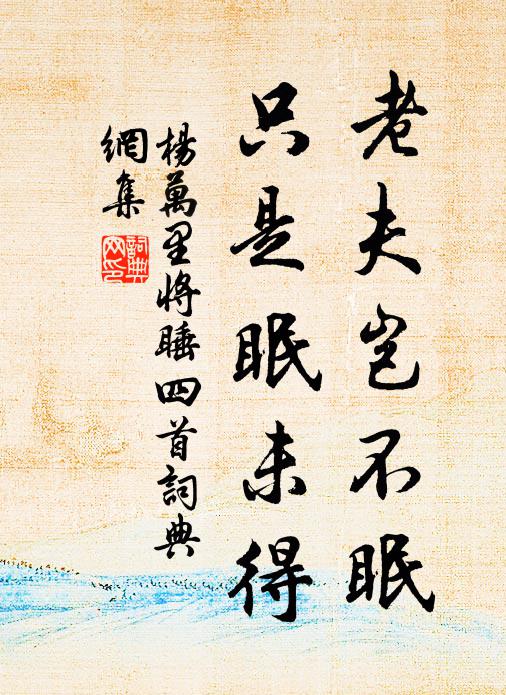 老夫岂不眠
只是眠未得
楊萬里將睡四首詞典
網集
詞典網印